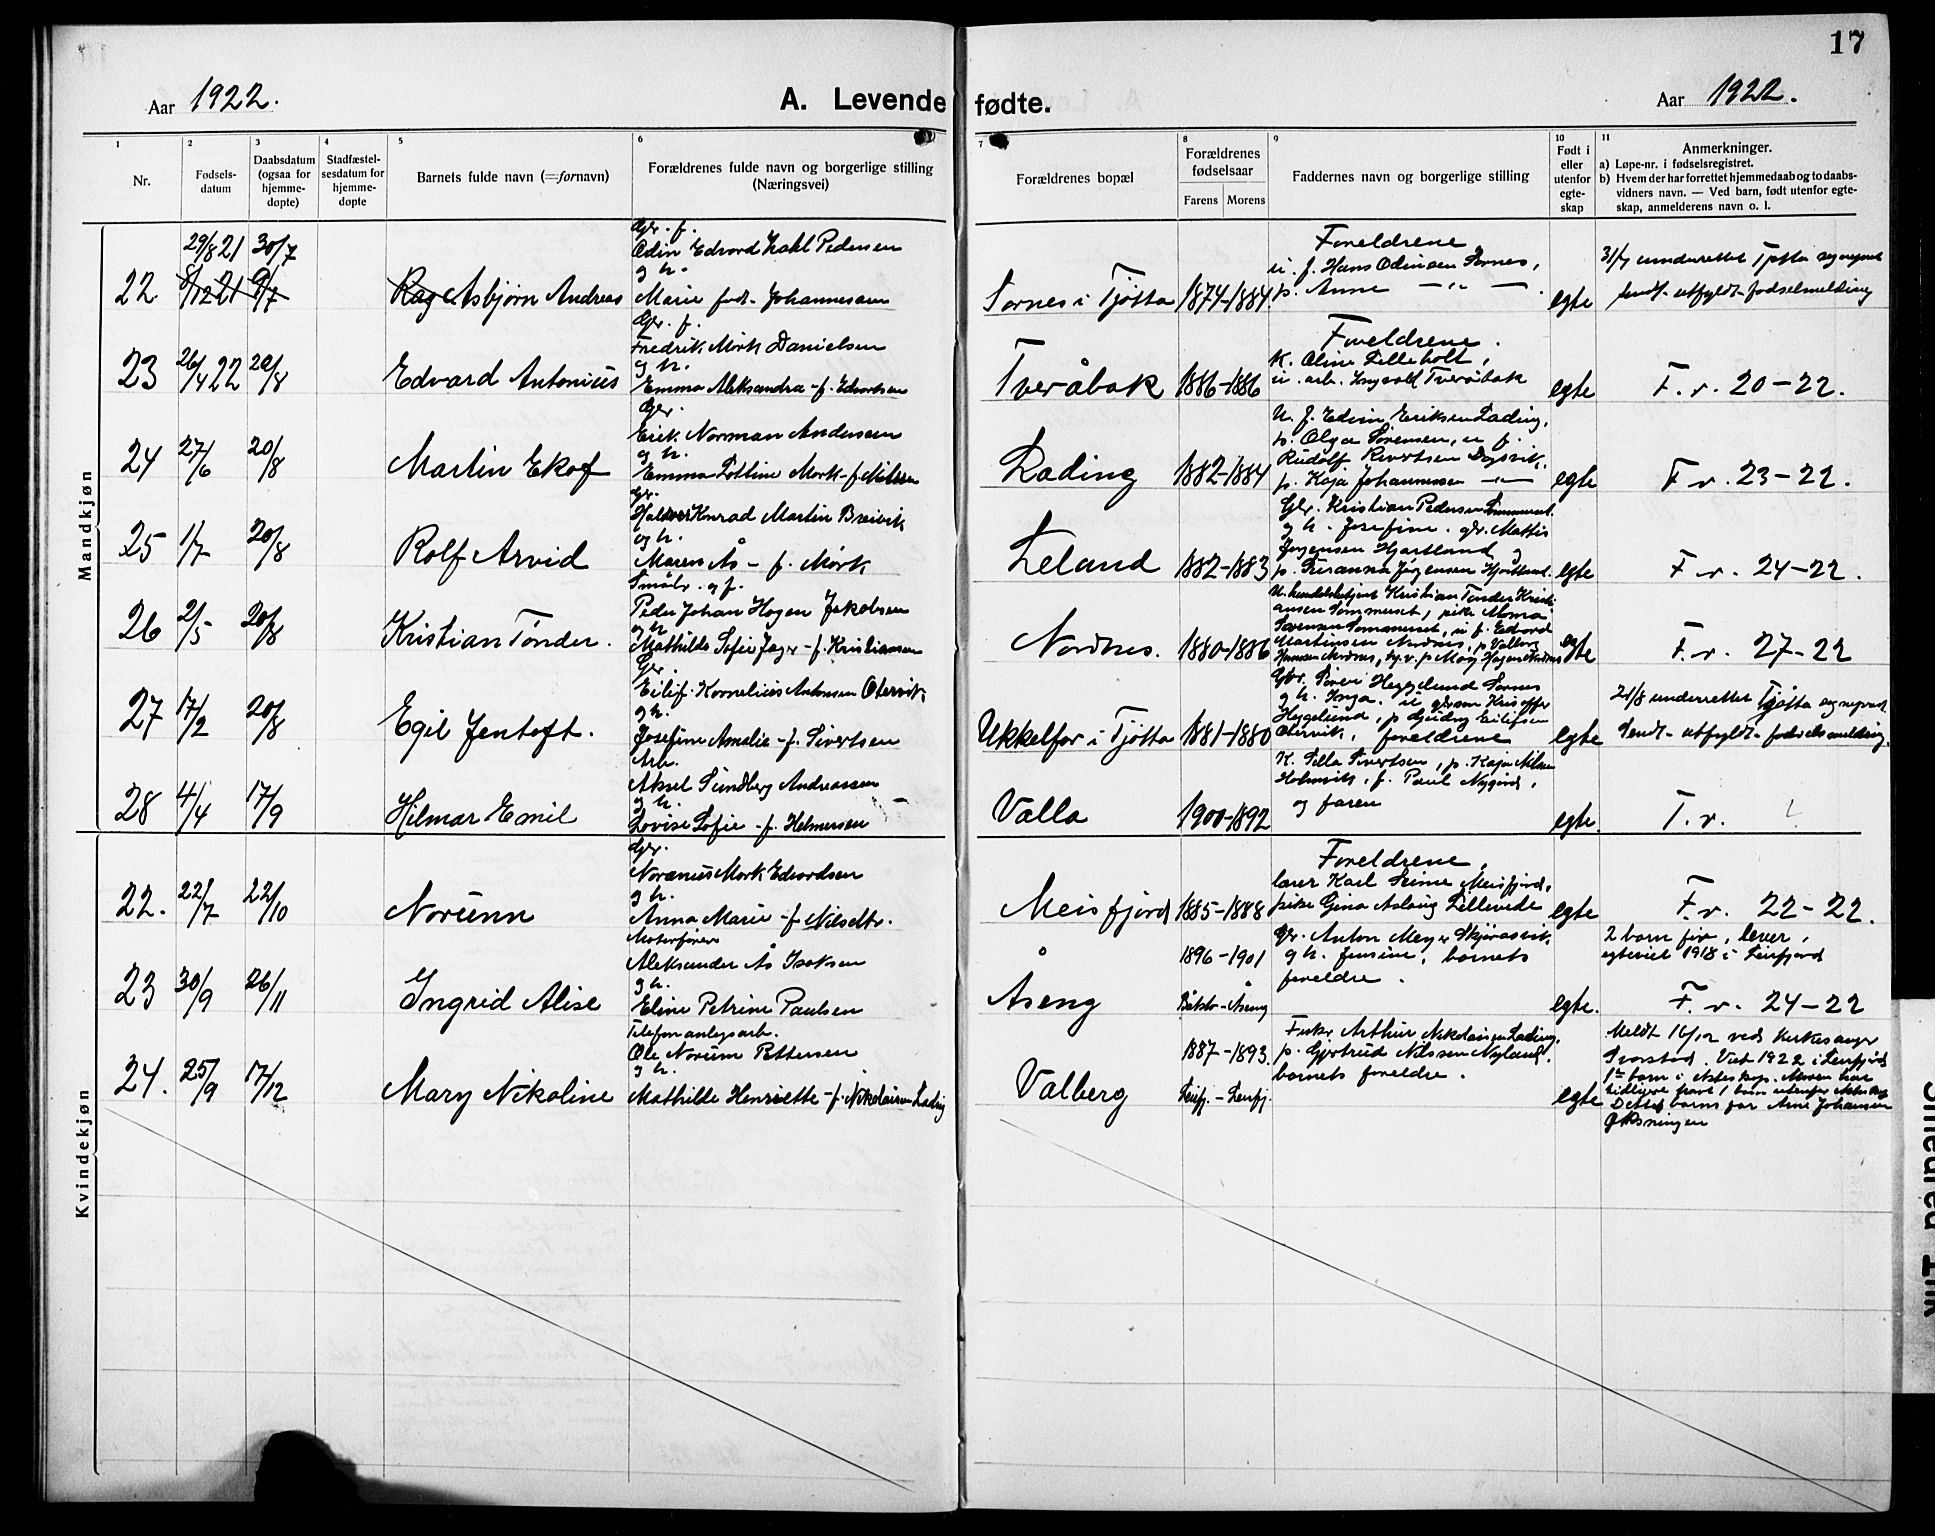 17
Aar 1922.
A. Levende fødte.
Aar 1922.
1 Nr.
2 Fødsels-datum
3 Daabsdatum (ogsaa for hjemme-døpte)
4 Stadfæstel-sesdatum for hjemme-døpte
5 Barnets fulde navn (=fornavn)
6 Forældrenes fulde navn og borgerlige stilling (Næringsvei)
7 Forældrenes bopæl
8 Forældrenes fødselsaar
Farens Morens
9 Faddernes navn og borgerlige stilling
10 Født i eller utenfor egte-skap
11 Anmerkninger.
a) Løpe-nr. i fødselsregistret.
b) Hvem der har forrettet hjemmedaab og to daabs-vidners navn. — Ved barn, født utenfor egte-skap, anmelderens navn o. l.
Mandkjøn
22 29/8 21 30/7 Asbjørn Andreas
Gbr. f.
Odin Edvard Dahl Pedersen
og h.
Marie født Johannesen
Sørnes i Tjøtta 1874-1884
Foreldrene
u. f. Hans Odinsen Sørnes,
p. Anne — " —
egte
31/7 underrettet Tjøtta sogneprest
sendt utfyldt fødselmelding
23 26/4 22 20/8 Edvard Antonius
Gbr. f.
Fredrik Mørk Danielsen
og h.
Emma Aleksandra - f. Edvartsen
Tveråbak 1886-1886
Foreldrene.
K. Oline Lilleholt,
u. arb. Ingvald Tveråbak
egte F. r. 20-22.
24 27/6 20/8 Martin Ekof
Gbr.
Erik Norman Andersen
og h.
Emma Lottine Mørk - f. Nilsen
Lading 1882-1884
U. f. Edvin Eriksen Lading,
p. Olga Sørensen, u. f.
Rudolf Sivertsen Dagsvik,
p. Kaja Johannesen — " —
egte F. r. 23-22.
25 1/7 20/8 Rolf Arvid
Gbr.
Halvor Konrad Martin Breivik
og h.
Maren Ås - f. Mørk
Leland 1882-1883
Gbr. Kristian Pedersen Sommerset
og h. Josefine. gbr. Mattis
Jørgensen Hjartland
p. Susanna Jørgensen Hjartland.
egte F. r. 24-22.
26 2/5 20/8 Kristian Tønder.
Småbr. og f.
Peder Johan Hagen Jakobsen
og h.
Mathilde Sofie Jæger - f. Kristiansen
Nordnes. 1880-1886
U. handelsbetjent Kristian Tønder Kristi
ansen Sommerset, pike Mona
Sørensen Sommerset, u. f. Edvard
Martinsen Nordnes, p. Valborg
Hansen Nordnes, p. Mary Hagen Nordnes
egte F. r. 27-22
27 17/2 20/8 Egil Jentoft.
Gbr.
Eilif Kornelius Antonsen Otervik
og h.
Josefine Amalie - f. Sivertsen
Ukkelfor i Tjøtta 1881-1880
Gbr. Søren Heggelund Sørnes
og h. Inga. u. gbrsøn Kristoffer
Heggelund, p. Gjudny Eilifsen
Otervik, foreldrene
egte
21/8 underrettet Tjøtta sogneprest.
Sendt utfyldt fødselsmelding.
28 4/4 17/9 Hilmar Emil
Arb.
Aksel Sundberg Andreassen
og h.
Lovise Sofie - f. Helmersen
Valla 1900-1892
K. Silla Sivertsen, p. Kaja Nilsen
Holmvik, f. Paul Nygård,
og faren
egte. F. r.
Kvindekjøn
22. 22/7 22/10 Norunn
Gbr.
Noranus Mørk Edvardsen
og h.
Anna Marie - f. Nilsdtr.
Meisfjord 1885-1888
Foreldrene,
lærer Karl Seines Meisfjord,
pike Gina Aslaug Lillevede
egte F. r. 22-22.
23 30/9 26/11 Ingrid Alise
Motorfører
Aleksander Ås Isaksen
og h.
Eline Petrine Paulsen
Åseng 1896-1901
Båtstr - Åseng
Gbr. Anton Meyer Skjåvasvik,
og h. Jensine, barnets
foreldre.
egte.
2 barn før, lever,
egteviet 1918 i Leirfjord
F. r. 24-22
24. 25/9 17/12 Mary Nikoline
Telefonanlegsarb.
Ole Norum Pettersen
og h.
Mathilde Henriette - f. Nikolaisen Lading
Valberg 1887-1893.
Leirfj. - Leirfj.
Fisker Arthur Nikolaisen Lading,
p. Gjertrud Nilssen Nyland,
barnets foreldre.
egte
Meldt 16/12 ved kirkesanger
Svarstad. Viet 1922 i Leirfjord
1ste barn i ekteskap. Moren har
tidligere født 1 barn utenfor ekteskap
Dette barns far Arne Johansen